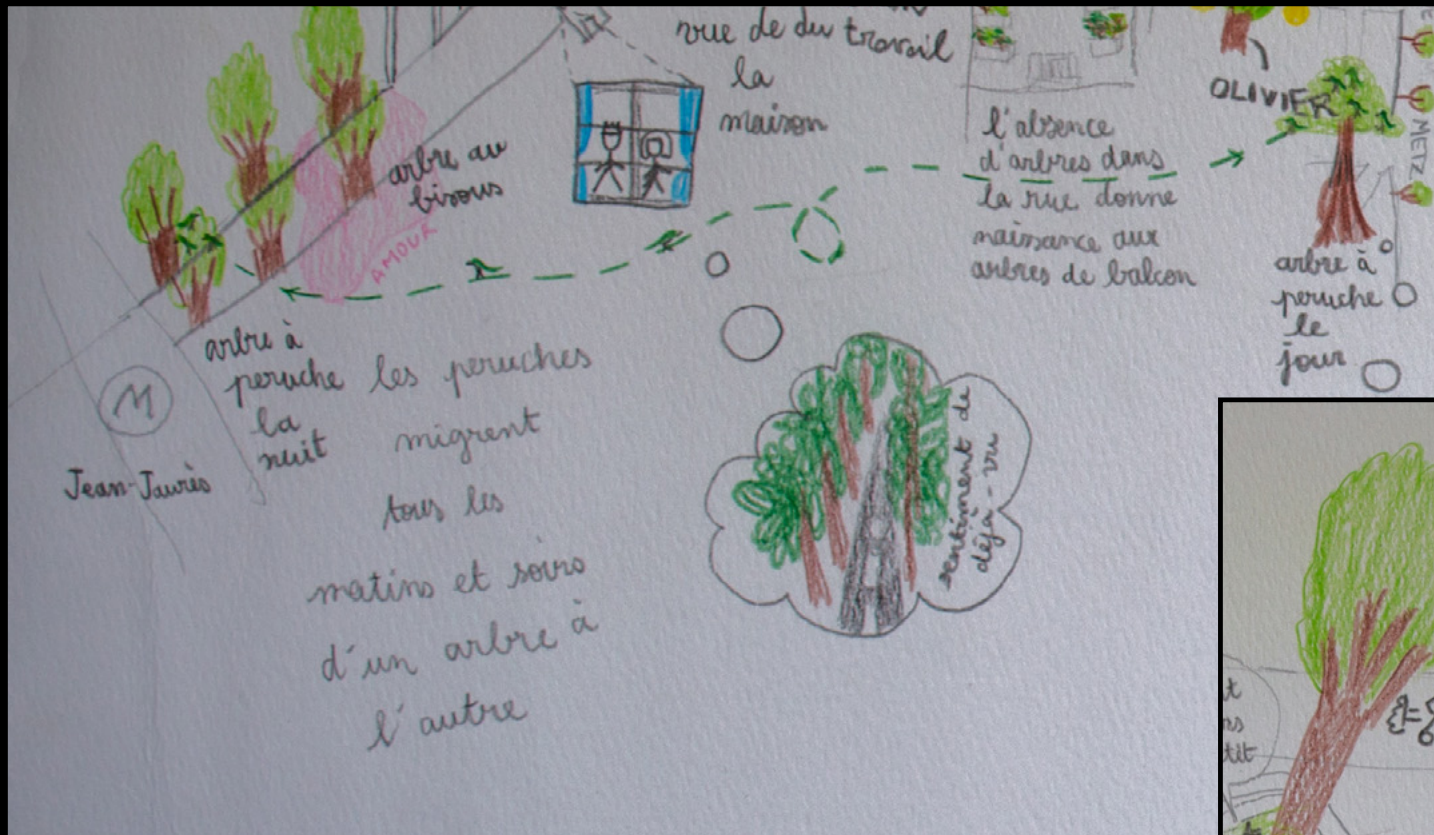 vue de du travail
la
maison
OLIVIER
METZ
arbre au
bisous
AMOUR
l'absence
d'arbres dans
la rue donne
naissance aux
arbres de balcon
arbre à
peruche
le
jour
arbre à
peruche
la
nuit
M
Jean-Jaurès
les peruches
migrent
tous les
matins et soirs
d'un arbre à
l'autre
sentiment de
déjà-vu